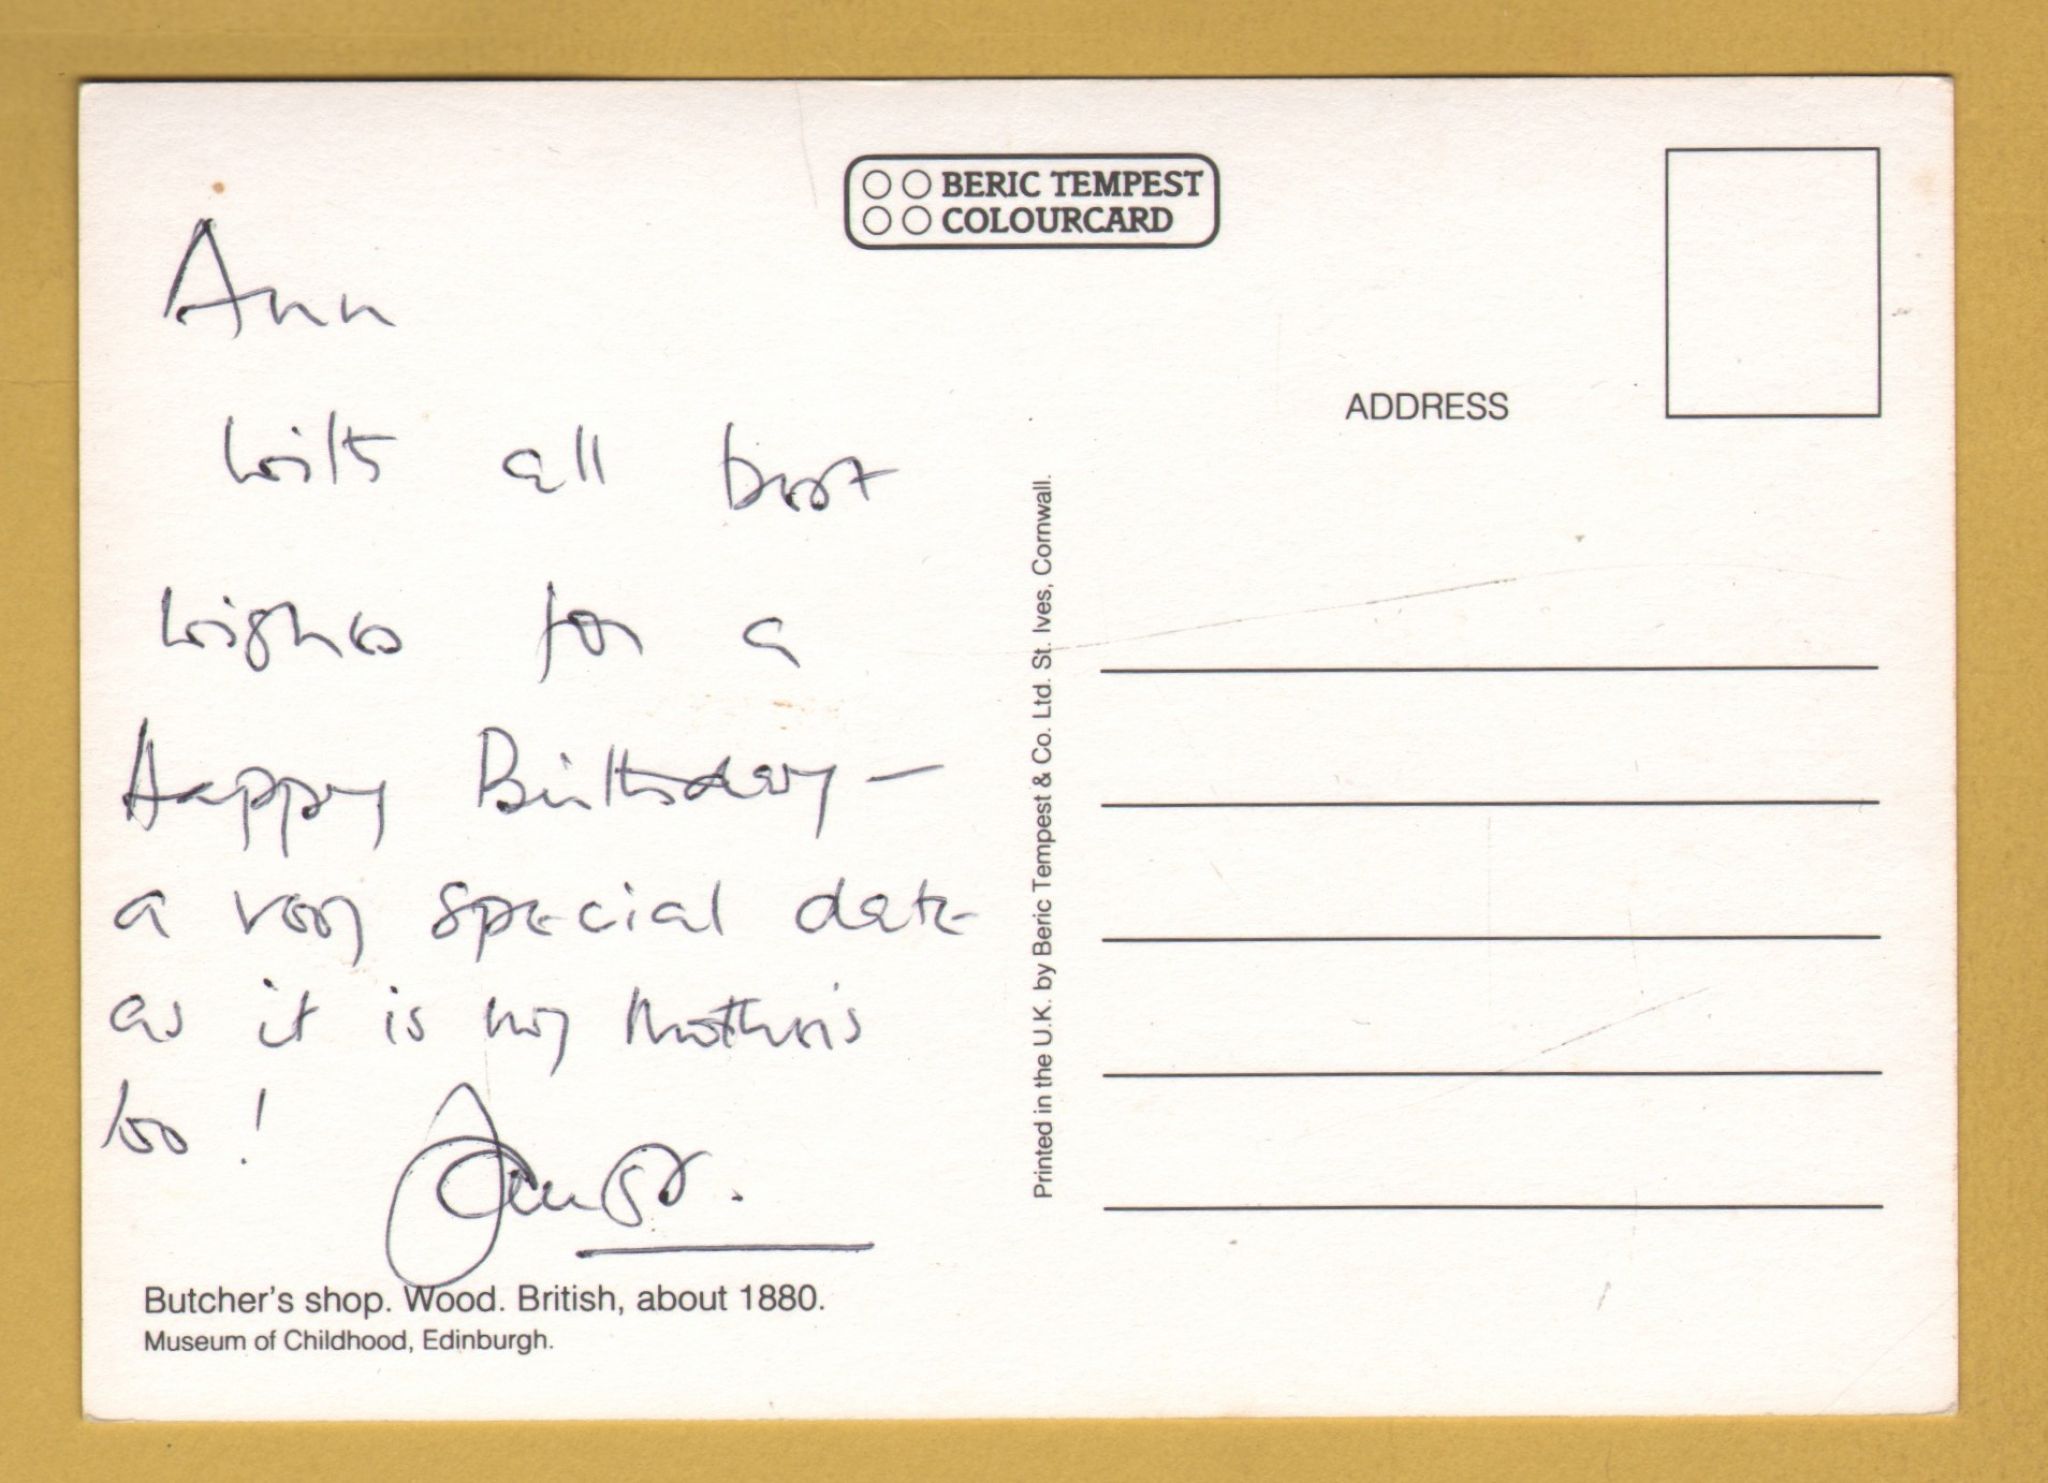 BERIC TEMPEST
COLOURCARD
Ann
with all best
wishes for a
Happy Birthday —
a very special date
as it is my Mother's
too!
ADDRESS
Printed in the U.K. by Beric Tempest & Co. Ltd. St. Ives, Cornwall.
Butcher's shop. Wood. British, about 1880.
Museum of Childhood, Edinburgh.